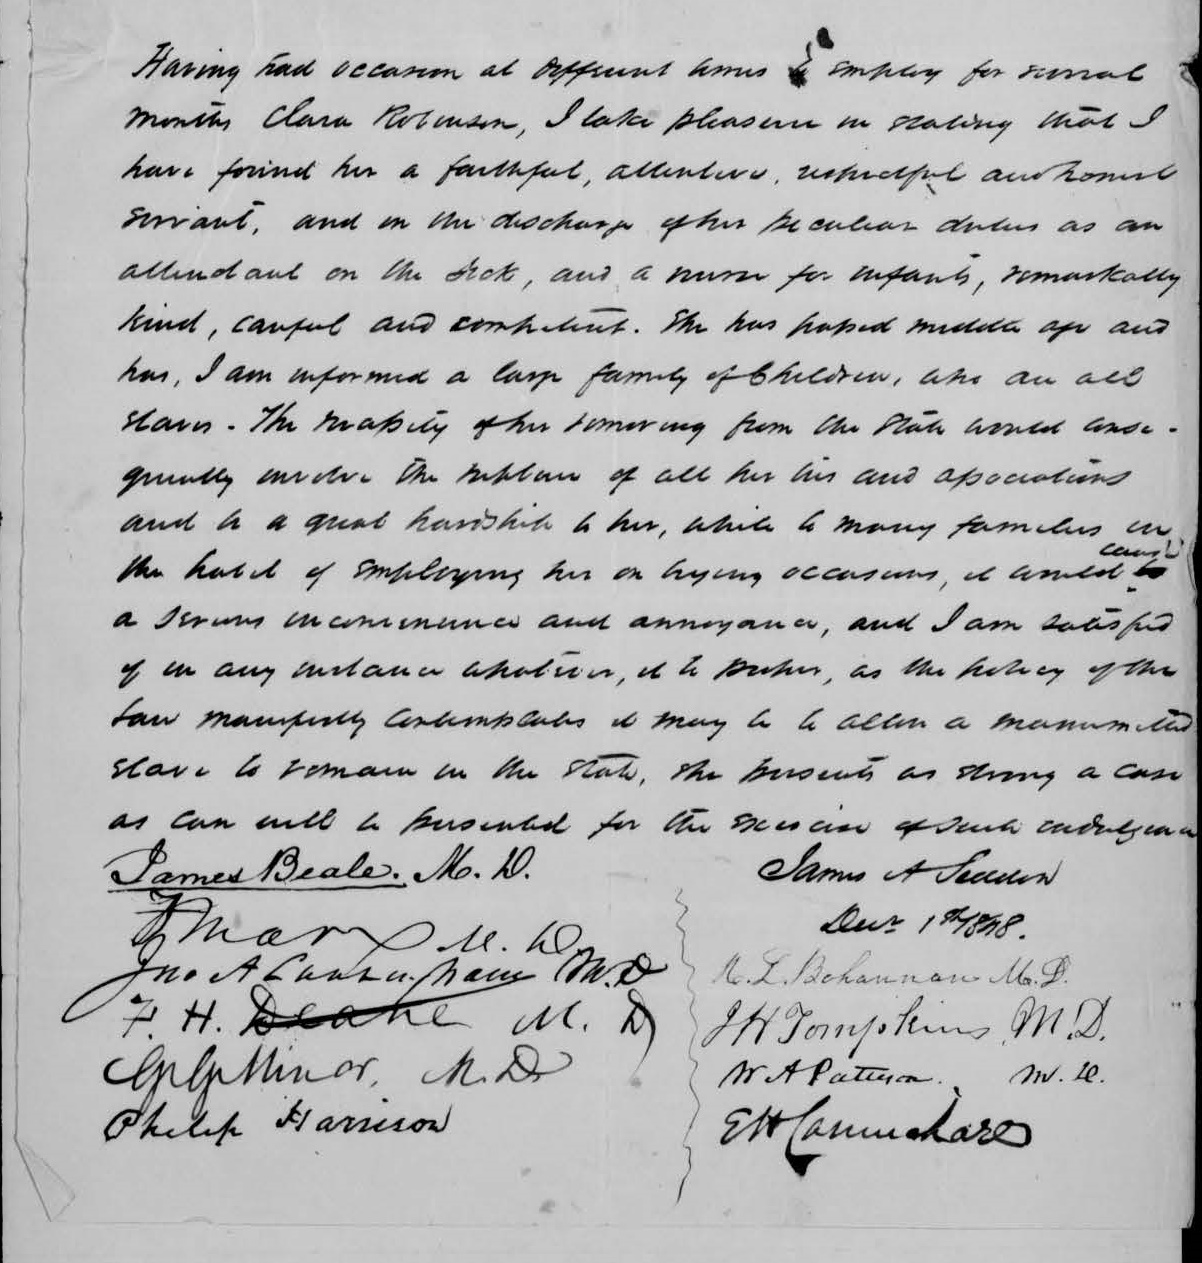 Having had occasion at different times to employ for several
months Clara Robinson, I take pleasure in stating that I
have found her a faithful, attentive, respectful and honest
servant, and in the discharge of her peculiar duties as an
attendant on the sick, and a nurse for infants, remarkably
kind, careful and competent. She has passed middle age and
has, I am informed a large family of Children, who are all
slaves. The necessity of her removing from the State would conse-
quently involve the rupture of all her ties and associations
and be a great hardship to her, while to many families in
the habit of employing her on trying occasions, it would cause
a serious inconvenience and annoyance, and I am satisfied
if in any instance whatever, it be proper, as the policy of the
Law manifestly contemplates it may be to allow a manumitted
slave to remain in the State, she presents as strong a case
as can well be presented for the exercise of such indulgence
James Beale. M. D.
James A Seddon
Decr 1st
M. D.
Jno A Cunningham M.D
R. L. Bohannan M. D.
F. H. Deane M. D
J H Tompkins M.D.
G G Minor, M. D.
W A Patteson. M. D.
Philip Harrison
E H Carmichael